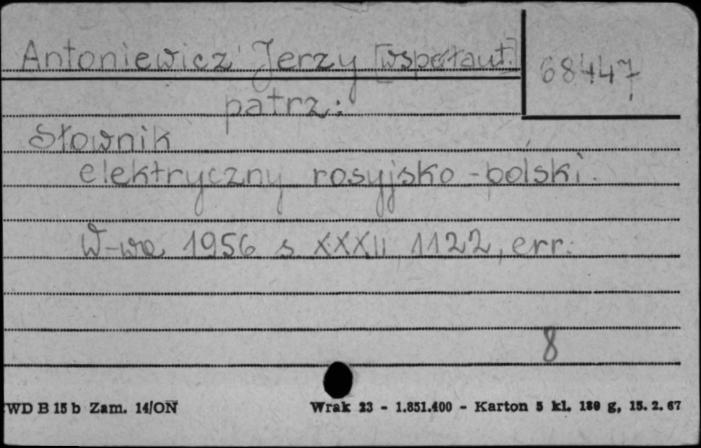 Antoniewicz Jerzy [współaut.]
68447
patrz:
Słownik
elektryczny rosyjsko-polski.
W-wa 1956 s XXXII, 1122, err.
8
WD B 15 b Zam. 14/ON Wrak 23 - 1.851.400 - Karton 5 kl. 180 g, 15. 2. 67